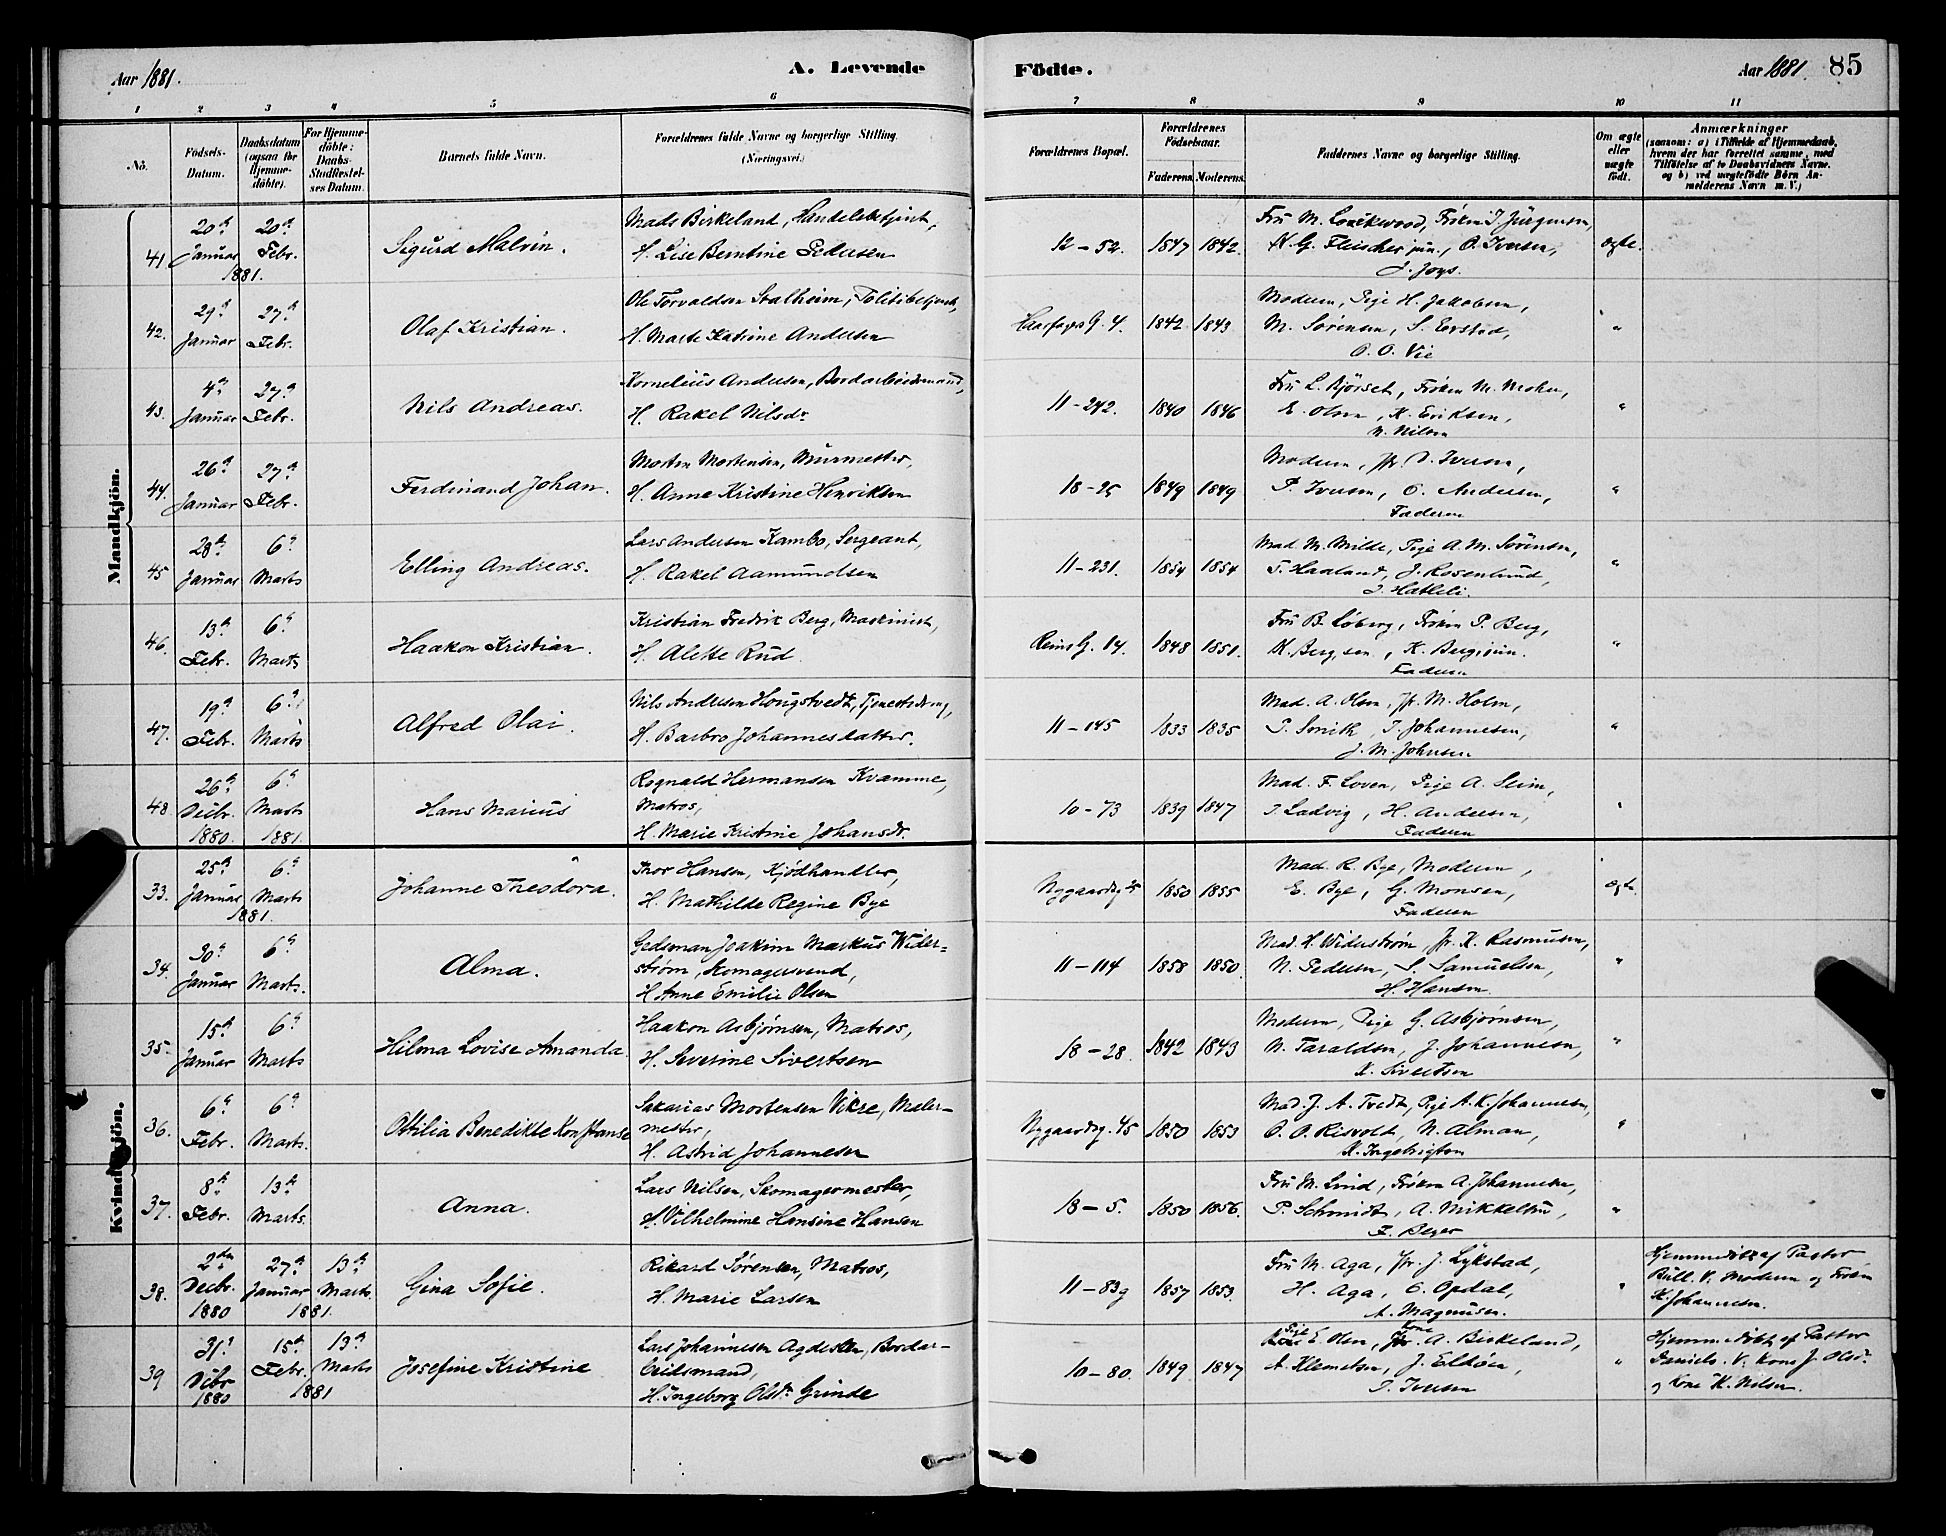 Aar 1881. A. Levende Födte. Aar 1881. 85
1 2 3 4 5 6 7 8 9 10 11
No. Födsels-Datum. Daabsdatum (ogsaa for Hjemmedöbte). For Hjemmedöbte: Daabs-Stadfæstelses Datum. Barnets fulde Navn. Forældrenes fulde Navne og borgerlige Stilling. (Næringsvei.) Forældrenes Bopæl. Forældrenes Födselsaar. Faderens. Moderens. Faddernes Navne og borgerlige Stilling. Om ægte eller uægte födt. Anmærkninger (saasom: a) i Tilfælde af Hjemmedaab, hvem der har forrettet samme, med Tilföielse af to Daabsvidners Navne. og b) ved uægtefödte Börn Anmelderens Navn m. V.)
Mandkjön.
41 20de Januar 1881. 20de Febr. Sigurd Malvin. Mads Birkeland, Handelsbetjent, H. Lise Berntine Pedersen 12-52. 1847 1842. Fru M. Lockwood, Frøken J. Jürgensen, H. G. Fleischer jun., O. Iversen, J. Joys. Ægte.
42. 29de Januar 27de Febr. Olaf Kristian. Ole Torvaldsen Stalheim, Politibetjent, H. Marte Katrine Andersen Haarfagres G. 4. 1842 1843 Moderen, Pige H. Jakobsen, M. Sørensen, S. Evestad, O. O. Vie "
43. 4de Januar 27de Febr. Nils Andreas. Kornelius Andersen, Bordarbeidsmand, H. Rakel Nilsdr 11-242. 1840 1846 Fru L. Bjørset, Frøken M. Mohn, E. Olsen, K. Eriksen, N. Nilsen "
44. 26de Januar 27de Febr. Ferdinand Johan. Morten Mortensen, Murmester, H. Anne Kristine Henriksen 18-25 1849 1849 Moderen, Jfr. D. Iversen, P. Iversen, O. Andersen, Faderen "
45 28de Januar 6te Marts Elling Andreas. Lars Andersen Kambo, Sergeant, H. Rakel Aamundsen 11-231. 1854 1854 Mad. M. Milde, Pige A. M. Sørensen, T. Haaland, J. Rosenlund, J. Hatleli. "
46. 13de Febr. 6te Marts Haakon Kristian. Kristian Fredrik Berg, Maskinist, H. Alette Rud. Reins G. 14. 1848 1851. Fru B. Løberg, Frøken P. Berg, K. Berg, sen., K. Berg, jun. Faderen "
47. 19de Febr. 6te Marts Alfred Olai. Nils Andersen Hougstvedt, Tjenestedreng, H. Barbro Johannesdatter. 11-145 1833 1835 Mad. A. Olsen, Jfr. M. Holm, P. Smith, J. Johannesen, J. M. Johnsen "
48. 26de Decbr. 1880. 6te Marts 1881. Hans Marius Rognald Hermansen Kvamme, Matros, H. Marie Kristine Johansdr. 10-73 1839 1847 Mad. F. Loven, Pige A. Seim, J. Ladvig, H. Andersen, Faderen "
Kvindekjön.
33. 25de Januar 1881. 6te Marts Johanne Theodora. Thor Hansen, Kjødhandler, H. Mathilde Regine Bye Nygaardsg 25 1850 1855 Mad. R. Bye, Moderen, E. Bye, G. Monsen, Faderen Ægte.
34. 30te Januar 6te Marts. Alma. Gedsman Joakim Markus Widerstrøm, Skomagersvend, H. Anne Emilie Olsen 11-114 1858 1850. Mad. H. Widerstrøm, Jfr. K. Rasmussen, N. Pedersen, S. Samuelsen, H. Hansen. "
35. 15de Januar 6te Marts Hilma Lovise Amanda Haakon Asbjørnsen, Matros, H. Severine Sivertsen 18-28. 1842 1843 Moderen, Pige G. Asbjørnsen, N. Taraldsen, J. Johannesen, K. Sivertsen "
36. 6te Febr. 6te Marts. Ottilia Benedikte Konstanse Sakarias Mortensen Vikre, Malermester, H. Astrid Johannesen Nygaardsg. 45 1850 1853 Mad. J. A. Tvedt, Pige A. K. Johannesen, O. O. Risvold, N. Alman, K. Ingebrigtsen "
37. 8de Febr. 13de Marts. Anna. Lars Nilsen, Skomagermester, H. Vilhelmine Hansine Hansen 18-5. 1850 1856. Fru M. Lind, Frøken A. Johannesen, P. Schmidt, A. Mikkelsen, F. Beyer "
38. 2den Decbr. 1880 27de Januar 13de Marts. 1881. Gina Sofie. Rikard Sørensen, Matros, H. Marie Larsen 11-83g 1857 1853. Fru M. Aga, Jfr. J. Lykstad, H. Aga, O. Opdal, A. Magnusen. " Hjemmedøbt af Pastor Bull. V. Moderen og Frøken K. Johannesen.
39 31te Decbr. 1880 15de Febr. 13de Marts 1881 Josefine Kristine Lars Johannesen Agdesten, Bordarbeidsmand, H. Ingeborg Olsdr. Grinde 10-80. 1849 1847 Pige E. Olsen, Kone A. Birkeland, A. Klemetsen, J. Elhøen, J. Iversen " Hjemmedøbt af Pastor Daniels. V. Kone J. Olsdr. og Kone K. Nilsen.